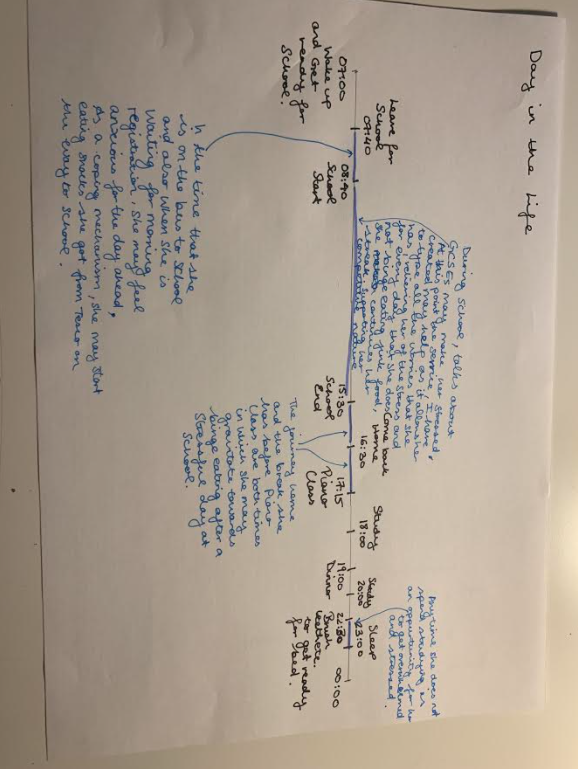 Day in the Life
Leave for
School
07:40
07:00
Wake up
and Get
ready for
School.
08:40
School
Start
During school, talks about
GCSES may make her stressed.
At this point the service I have
created may help as it allows her
to type all the worries that she
has, relieving her of the stress and
for every day that she does
not binge eating junk food,
she continues her
streak, supporting her
competitive nature.
15:30
School
End
Come back
Home
16:30
17:15
Piano
Class
Study
18:00
19:00
Dinner
Study
20:00
22:30
Brush
teeth etc.
to get ready
for bed.
Sleep
23:00
00:00
Anytime she does not
spend studying is
an opportunity for her
to get overwhelmed
and stressed.
In the time that she
is on the bus to school
and also when she is
waiting for morning
registration, she may feel
anxious for the day ahead,
As a coping mechanism, she may start
eating snacks she got from Tesco on
the way to school.
The journey home
and the break she
has before Piano
Class are both times
in which she may
gravitate towards
binge eating after a
stressful day at
School.